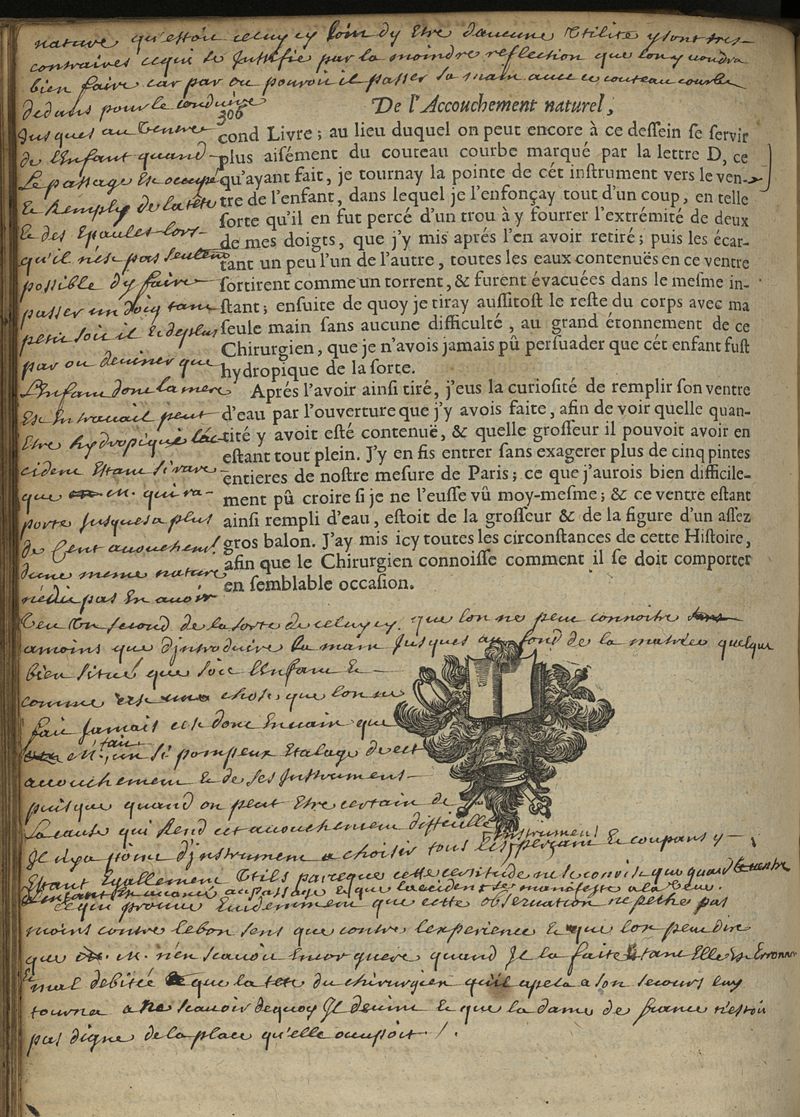 nature qu'estoit celuy cy loin dy Etre daucune Utilité y sont tres-
contraires cequi se Justifie par la moindre reflection que lon y voudra
bien faire car par ou pouvoit il passer sa main avec ce couteau courbe
dedans pour le conduire
Jusques au Ventre
de l'Enfant quand
Le passage Est occupé
& Remply de la tête
& des Epaules lors-
qu'il n'est pas seulement
possible d'y faire
passer un doig tant
petit soit il & deplus
par ou deviner que
l'Enfant dont la mere
Est En travail peut
Etre hydropique l'ac-
cident Estant si rare
que m. qui ra-
porte Jusques a plus
de Cent accouchem.
dune meme nature
n'edit pas En avoir
306
De l'Accouchement naturel,
cond Livre ; au lieu duquel on peut encore à ce dessein se servir
plus aisément du couteau courbe marqué par la lettre D, ce
qu'ayant fait, je tournay la pointe de cét instrument vers le ven-
tre de l'enfant, dans lequel je l'enfonçay tout d'un coup, en telle
sorte qu'il en fut percé d'un trou à y fourrer l'extrémité de deux
de mes doigts, que j'y mis aprés l'en avoir retiré ; puis les écar-
tant un peu l'un de l'autre, toutes les eaux contenuës en ce ventre
sortirent comme un torrent, & furent évacuées dans le mesme in-
stant ; ensuite de quoy je tiray aussitost le reste du corps avec ma
seule main sans aucune difficulté , au grand étonnement de ce
Chirurgien, que je n'avois jamais pû persuader que cét enfant fust
hydropique de la sorte.
Aprés l'avoir ainsi tiré, j'eus la curiosité de remplir son ventre
d'eau par l'ouverture que j'y avois faite, afin de voir quelle quan-
tité y avoit esté contenuë, & quelle grosseur il pouvoit avoir en
estant tout plein. J'y en fis entrer sans exagerer plus de cinq pintes
entieres de nostre mesure de Paris ; ce que j'aurois bien difficile-
ment pû croire si je ne l'eusse vû moy-mesme ; & ce ventre estant
ainsi rempli d'eau, estoit de la grosseur & de la figure d'un assez
gros balon. J'ay mis icy toutes les circonstances de cette Histoire,
afin que le Chirurgien connoisse comment il se doit comporter
en semblable occasion.
Veu Un second de la sorte de celuy cy. que lon ne peut connoitre
amoins que d'introduire la main Jusques au fond de la matrice quelque
bien situé que soit l'Enfant &
comme c'est une chose que lon ne
fait Jamais c'est donc En vain que
m. fait un si pompeux Etalage de cet
accouchement & de ses Instrument
puisque quand on peut Etre certain de
La cause qui Rend cet accouchement difficille
Il n'y a point d'instrument a choisir tous les Instrument perçant & coupans y
Estant Egallement Utils parceque cette certitude ne se connoist que quand le ventre
de l'enfant est avancé au passage & que l'accident se manifeste a la Veue.
ce qui prouve Evidemment que cette observation ne peche pas
moins contre le bon sens que contre l'experience & que lon peut dire
que m. n'en scavoit Encor guere quand Il la faite Etant Elle est Erronn
& mal debitée & que la tete du chirurgien qu'il apela a son secours luy
tourna a ne scavoir dequoy Il devint & que la dame de france n'estoit
pas digne de la place qu'elle occupoit. /.